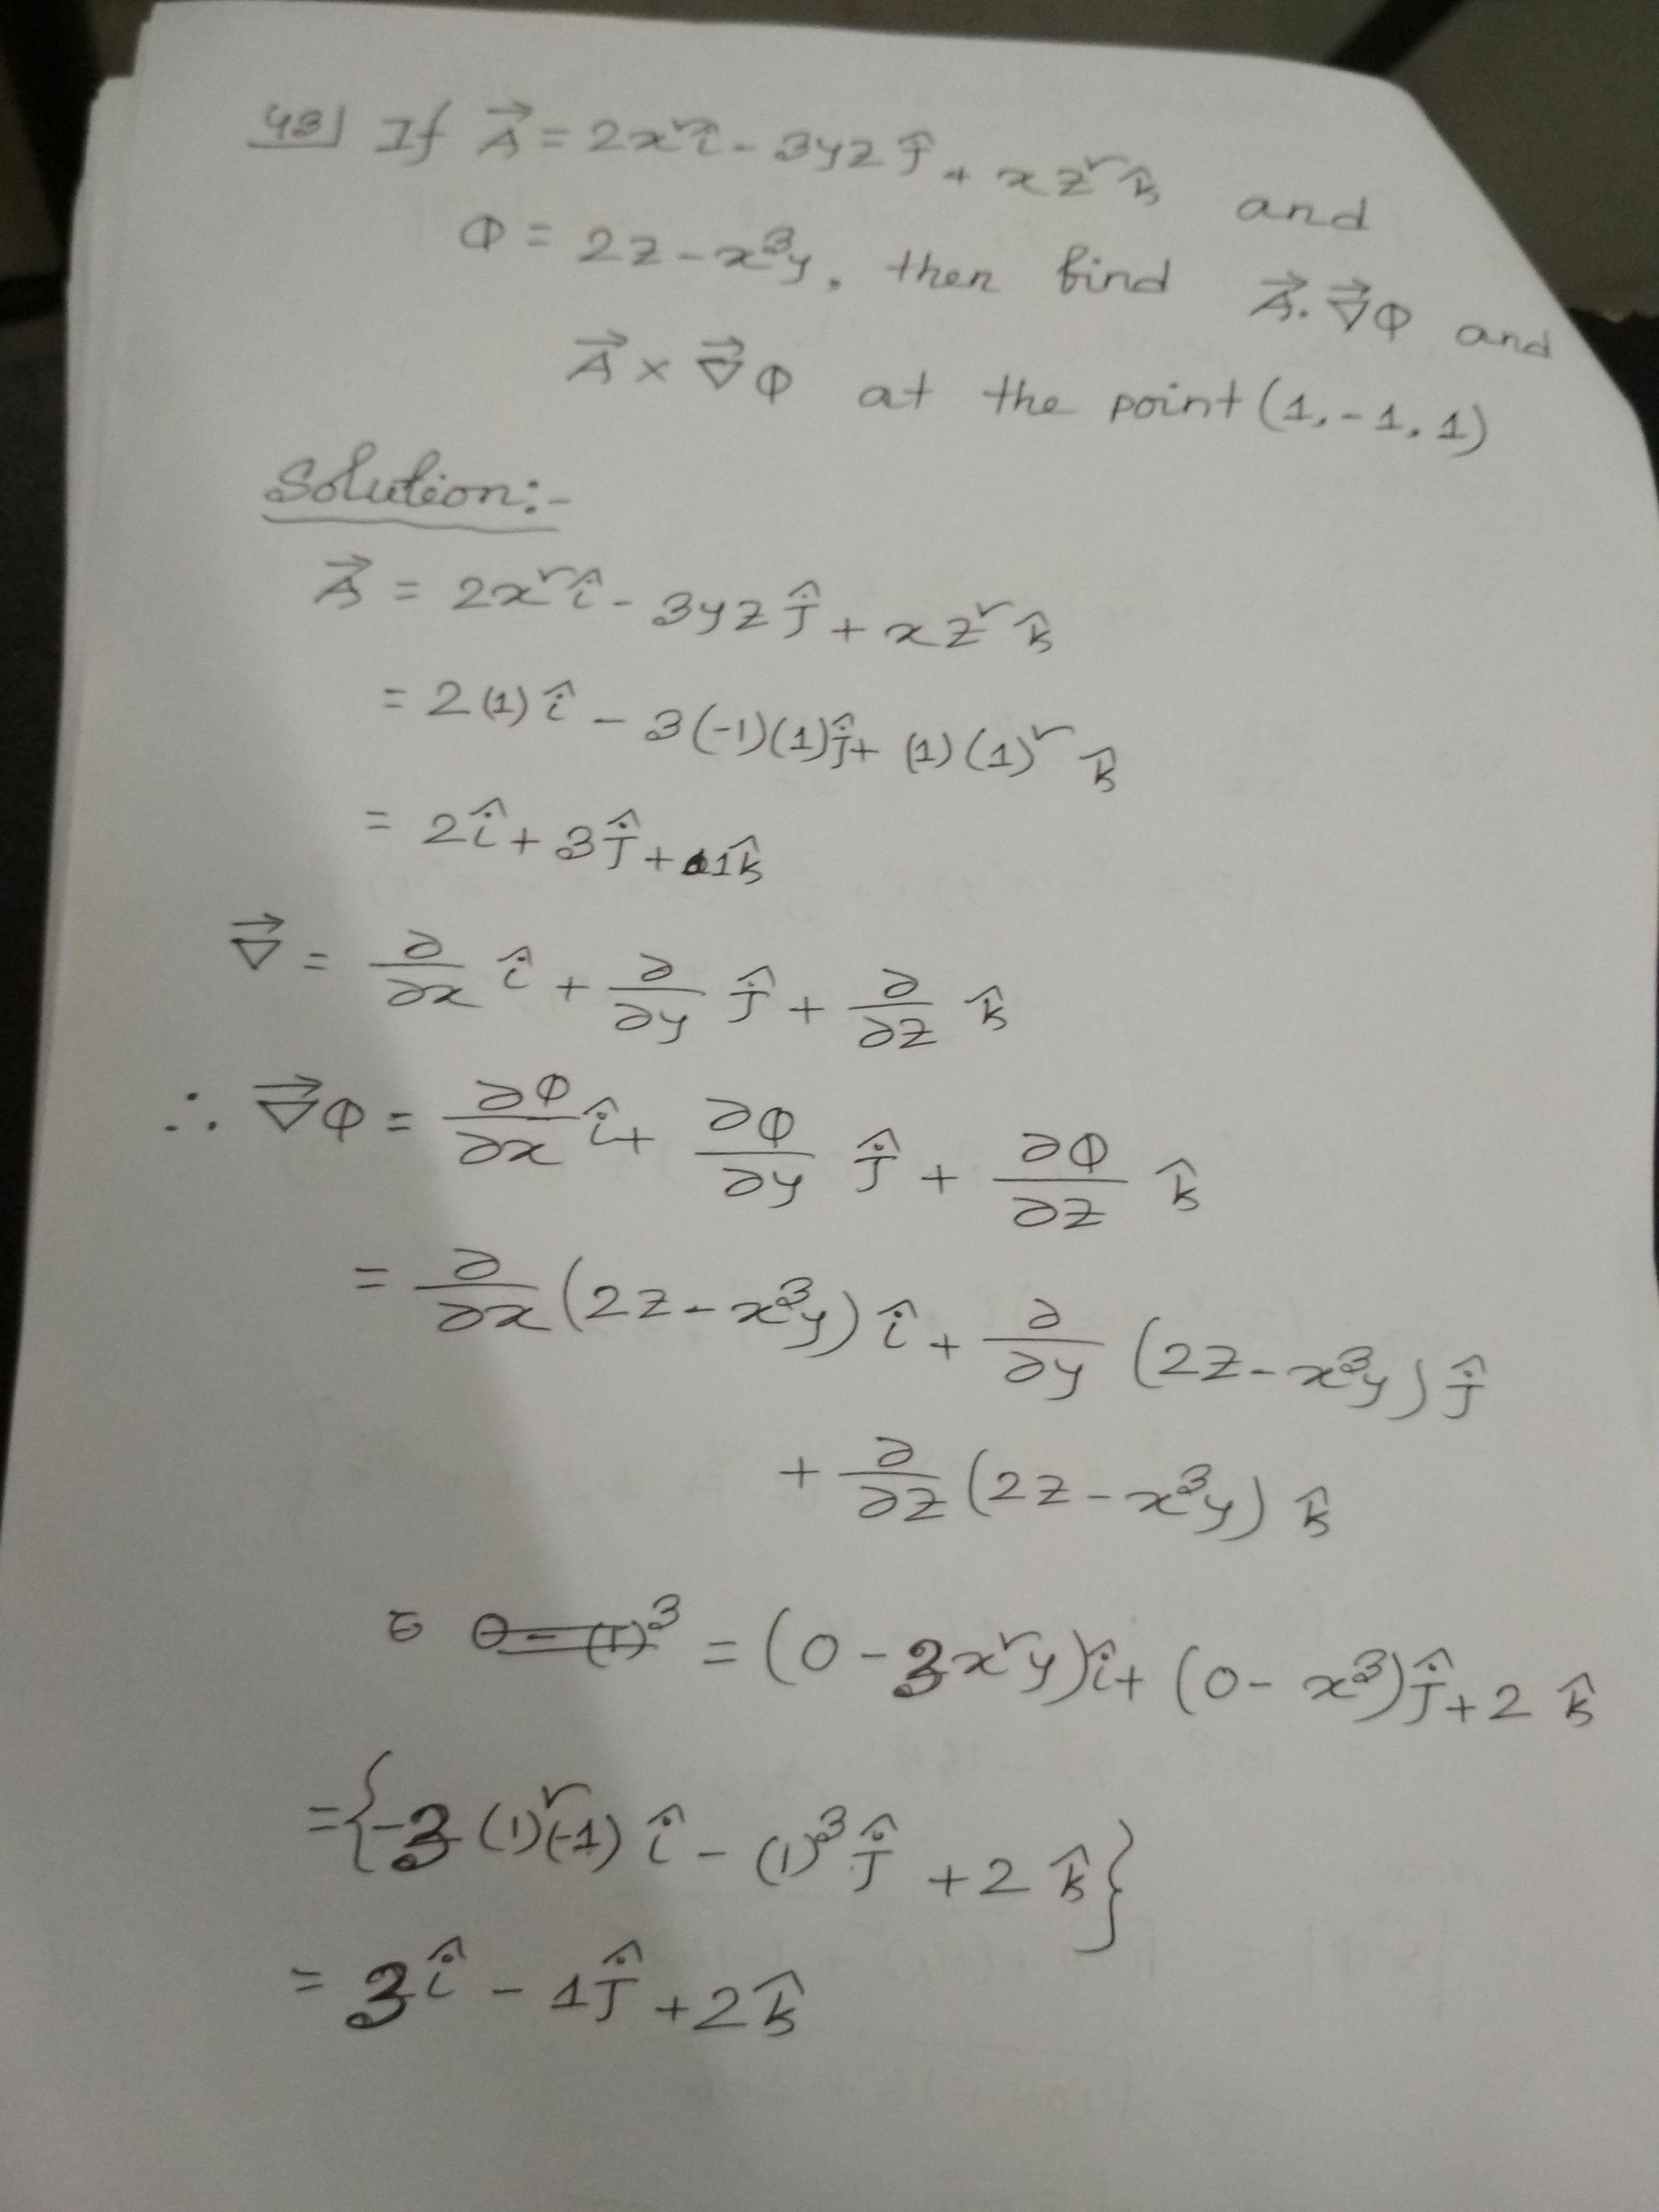 43) If A⃗ = 2x²î - 3yz ĵ + xz² k̂ and
Φ = 2z - x³y, then find A⃗.∇⃗Φ and
A⃗ × ∇⃗Φ at the point (1, -1, 1)
Solution:-
A⃗ = 2x²î - 3yz ĵ + xz² k̂
= 2(1) î - 3(-1)(1)ĵ + (1)(1)² k̂
= 2î + 3ĵ + 1k̂
∇⃗ = ∂/∂x î + ∂/∂y ĵ + ∂/∂z k̂
∴ ∇⃗Φ = ∂Φ/∂x î + ∂Φ/∂y ĵ + ∂Φ/∂z k̂
= ∂/∂x (2z - x³y) î + ∂/∂y (2z - x³y) ĵ
+ ∂/∂z (2z - x³y) k̂
0 - (1)³ = (0 - 3x²y)î + (0 - x³)ĵ + 2 k̂
= {-3 (1)²(-1) î - (1)³ ĵ + 2 k̂}
= 3î - 1ĵ + 2k̂